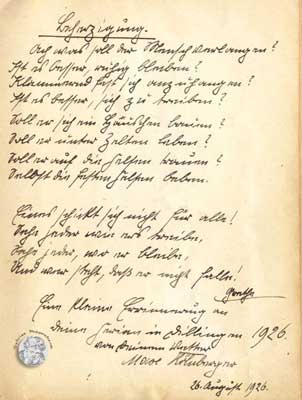 Beherzigung.
Ach was soll der Mensch verlangen?
Ist es besser, ruhig bleiben?
Klammernd fest sich anzuhangen?
Ist es besser, sich zu treiben?
Soll er sich ein Häuschen bauen?
Soll er unter Zelten leben?
Soll er auf die Felsen trauen?
Selbst die festen Felsen beben.
Eines schickt sich nicht für alle!
Sehe jeder wie ers treibe,
Sehe jeder, wo er bleibe,
Und wer steht, daß er nicht falle!
Goethe
Eine kleine Erinnerung an
deine Ferien in Dillingen 1926.
von deinem Vetter
Max
26. August 1926.